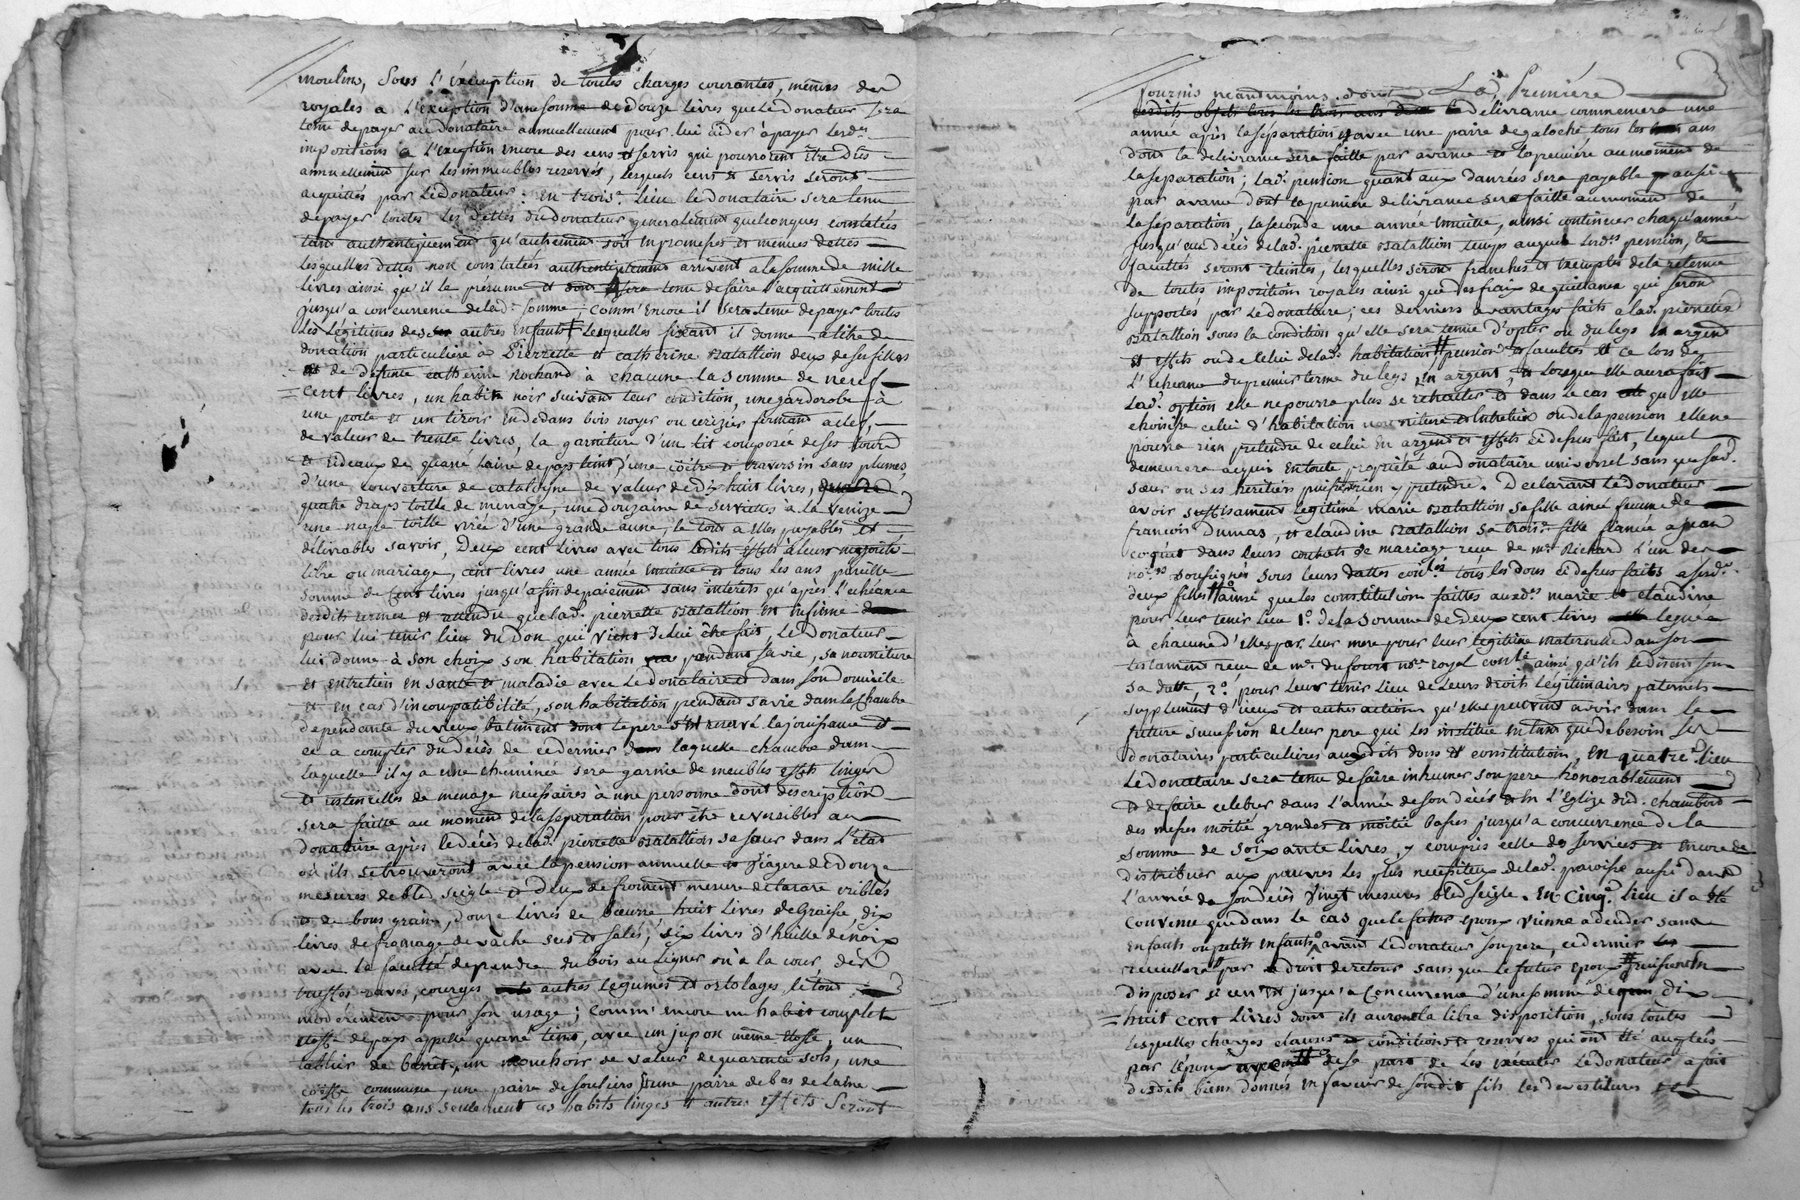 moulins, sous l'exeception de toutes charges courantes, mêmes des
royales a l'exception d'une somme de douze livres que le donateur sera
tenu de payer au donataire annuellement pour lui aider à payer lesd.
impositions a l'exeption encore des cens et servis qui pourroient être dus
annuellement sur les immeubles reservés, lesquels cens et servis seront
acquittés par le donateur : en trois.e lieu le donataire sera tenu
de payer toutes les dettes du donateur generalement quelconques constatées
tant authentiquement qu'autrement soit en promesses et menues dettes
lesquelles dettes non constatées authentiquement arrivent a la somme de mille
livres ainsi qu'il le présume et dont sera tenu de faire l'acquittement
jusqu'a concurrence de lad. somme, comm'encore il sera tenu de payer toutes
les légitimes de ses autres enfants lesquelles fixant il donne a titre de
donation particulière à Pierrette et catherine Batallion deux de ses filles
et de defunte catherine Rochard à chacune la somme de neuf
cent livres, un habit noir suivant leur condition, une gardorobe à
une porte et un tiroir en dedans bois noyer ou cerizier fermant a clef,
de valeur de trente livres, la garniture d'un lit composée de ses tour
et rideaux de quarré laine de pays teint, d'une coitre et traversin sans plumes
d'une couverture de catalogne de valeur de dix huit livres,
quatre draps toille de menage, une douzaine de serviettes a la venize
une nape toille virée d'une grande aune, le tout a elles payables et
délivrables savoir, Deux cent livres avec tous lesdits effets à leur majorité
libre ou mariage, cent livres une année ensuitte et tous les ans pareille
somme de cent livres jusqu'a fin de paiement sans interets qu'après l'echéance
desdits termes et attendu que lad. pierrette Batallion est infirme
pour lui tenir lieu du don qui vient de lui être fait, le donateur
lui donne à son choix son habitation pendant sa vie, sa nourriture
et entretien en santé et maladie avec le donataire et dans son domicile
et en cas d'incompatibilité, son habitation pendant sa vie dans la chambre
dependante du vieux batiment dont le pere s'est reservé la jouissance et
ce a compter du décès de ce dernier dans laquelle chambre dans
laquelle il y a une cheminée sera garnie de meubles effets linges
et ustencilles de menage necessaires à une personne dont description
sera faitte au moment de la séparation pour être reversibles au
donataire après le décès de lad. pierrette Batallion sa sœur dans l'état
où ils se trouveront avec la pension annuelle et viagere de douze
mesures de bled seigle et deux de froment mesure de larare criblés
et de bons grains, douze livres de bœurre huit livres de graisse, dix
livres de fromage de vache secs et salés, six livres d'huille de noix
avec la faculté de prendre du bois au ligner ou a la cour, des
truffes raves, courges autres legumes et ortolages le tout
moderement pour son usage; comm'encore un habit complet
étoffe de pays appellé quarré teint, avec un jupon même étoffe, un
tablier de barret, un mouchoir de valeur de quarante sols, une
coiffe commune, une paire de souliers et une paire de bas de laine
tous les trois ans seulement ces habits linges et autres effets seront
fournis neantmoins dont La Première
lesdits objets tous les trois ans dont la délivrance commencera une
année après la séparation et avec une paire de galoche tous les ans
dont la delivrance sera faitte par avance et la première au moment de
la séparation; lad. pension quant aux danrées sera payable aussi
par avance dont la première délivrance sera faitte au moment de
la séparation, la seconde une année ensuitte, ainsi continuer chaqu'année
jusqu'au décès de lad. pierrette Batallion temps auquel lesd.es pension, et
facultés seront éteintes, lesquelles seront franches et exemptes de la retenue
de toutes impositions royales ainsi que des fraix de quittance qui seront
supportés par le donataire; ces derniers avantages faits a lad. pierrette
Batallion sous la condition qu'elle sera tenue d'opter ou du legs en argent
et effets ou de celui de lad. habitation # pension et facultés et ce lors de
l'echeance du premier terme du legs en argent, et lorsque elle aura fait
lad. option elle ne pourra plus se retracter et dans le cas qu'elle
choisisse celui d'habitation nourriture et entretien ou de la pension elle ne
pourra rien pretendre de celui en argent et effets ci dessus fait, lequel
demeurera acquis en toute propriété au donataire universel sans que sad.
sœur ou ses heritiers puissent rien y pretendre. Declarant le donateur
avoir suffisament légitimé marie Batallion sa fille ainée femme de
francois Dumas, et claudine Batallion sa trois.e fille fiancée a jean
coquat dans leurs contrats de mariage reçu de m.e Richard l'un des
no.res soussignés sous leurs dattes con.lées tous les dons ci dessus faits a sesd.
deux filles # ainsi que les constitutions faittes auxd.es marie et claudine
pour leur tenir lieu 1.o de la somme de deux cent livres leguée
à chacune d'elles par leur mere pour leur legitime maternelle dans son
testament reçu de m.e dufourt no.re royal con.lé ainsi qu'ils le disent sous
sa datte, 2.o pour leur tenir lieu de leurs droits légitimaires paternels
supplement d'iceux et autres actions qu'elles peuvent avoir dans la
future succession de leur pere qui les institue en tant que de besoin ses
donataires particulieres auxdits dons et constitutions, en quatre.e lieu
le donataire sera tenu de faire inhumer son pere honorablement
et de faire celebrer dans l'année de son décès et en l'eglise dud. chambost
des messes moitié grandes et moitié basses jusqu'a concurrence de la
somme de soixante livres, y compris celle des services et encore de
distribuer aux pauvres les plus necessiteux de lad. paroisse aussi dans
l'année de son décès vingt mesures bled seigle. en cinq.e lieu il a été
convenu que dans le cas que le futur epoux vienne a deceder sans
enfants ou petits enfants avant le donateur son pere, ce dernier
recueillera par droit de retour sans que le futur epoux # puissent en
disposer si cen'est jusqu'a concurrence d'une somme de dix
huit cent livres dont ils auront la libre disposition, sous toutes
lesquelles charges clauses conditions et reserves qui ont été acceptées
par l'epoux avec promesse de sa part de les executer le donateur a fait
desdits biens donnés en faveur de sondit fils les devestitures et